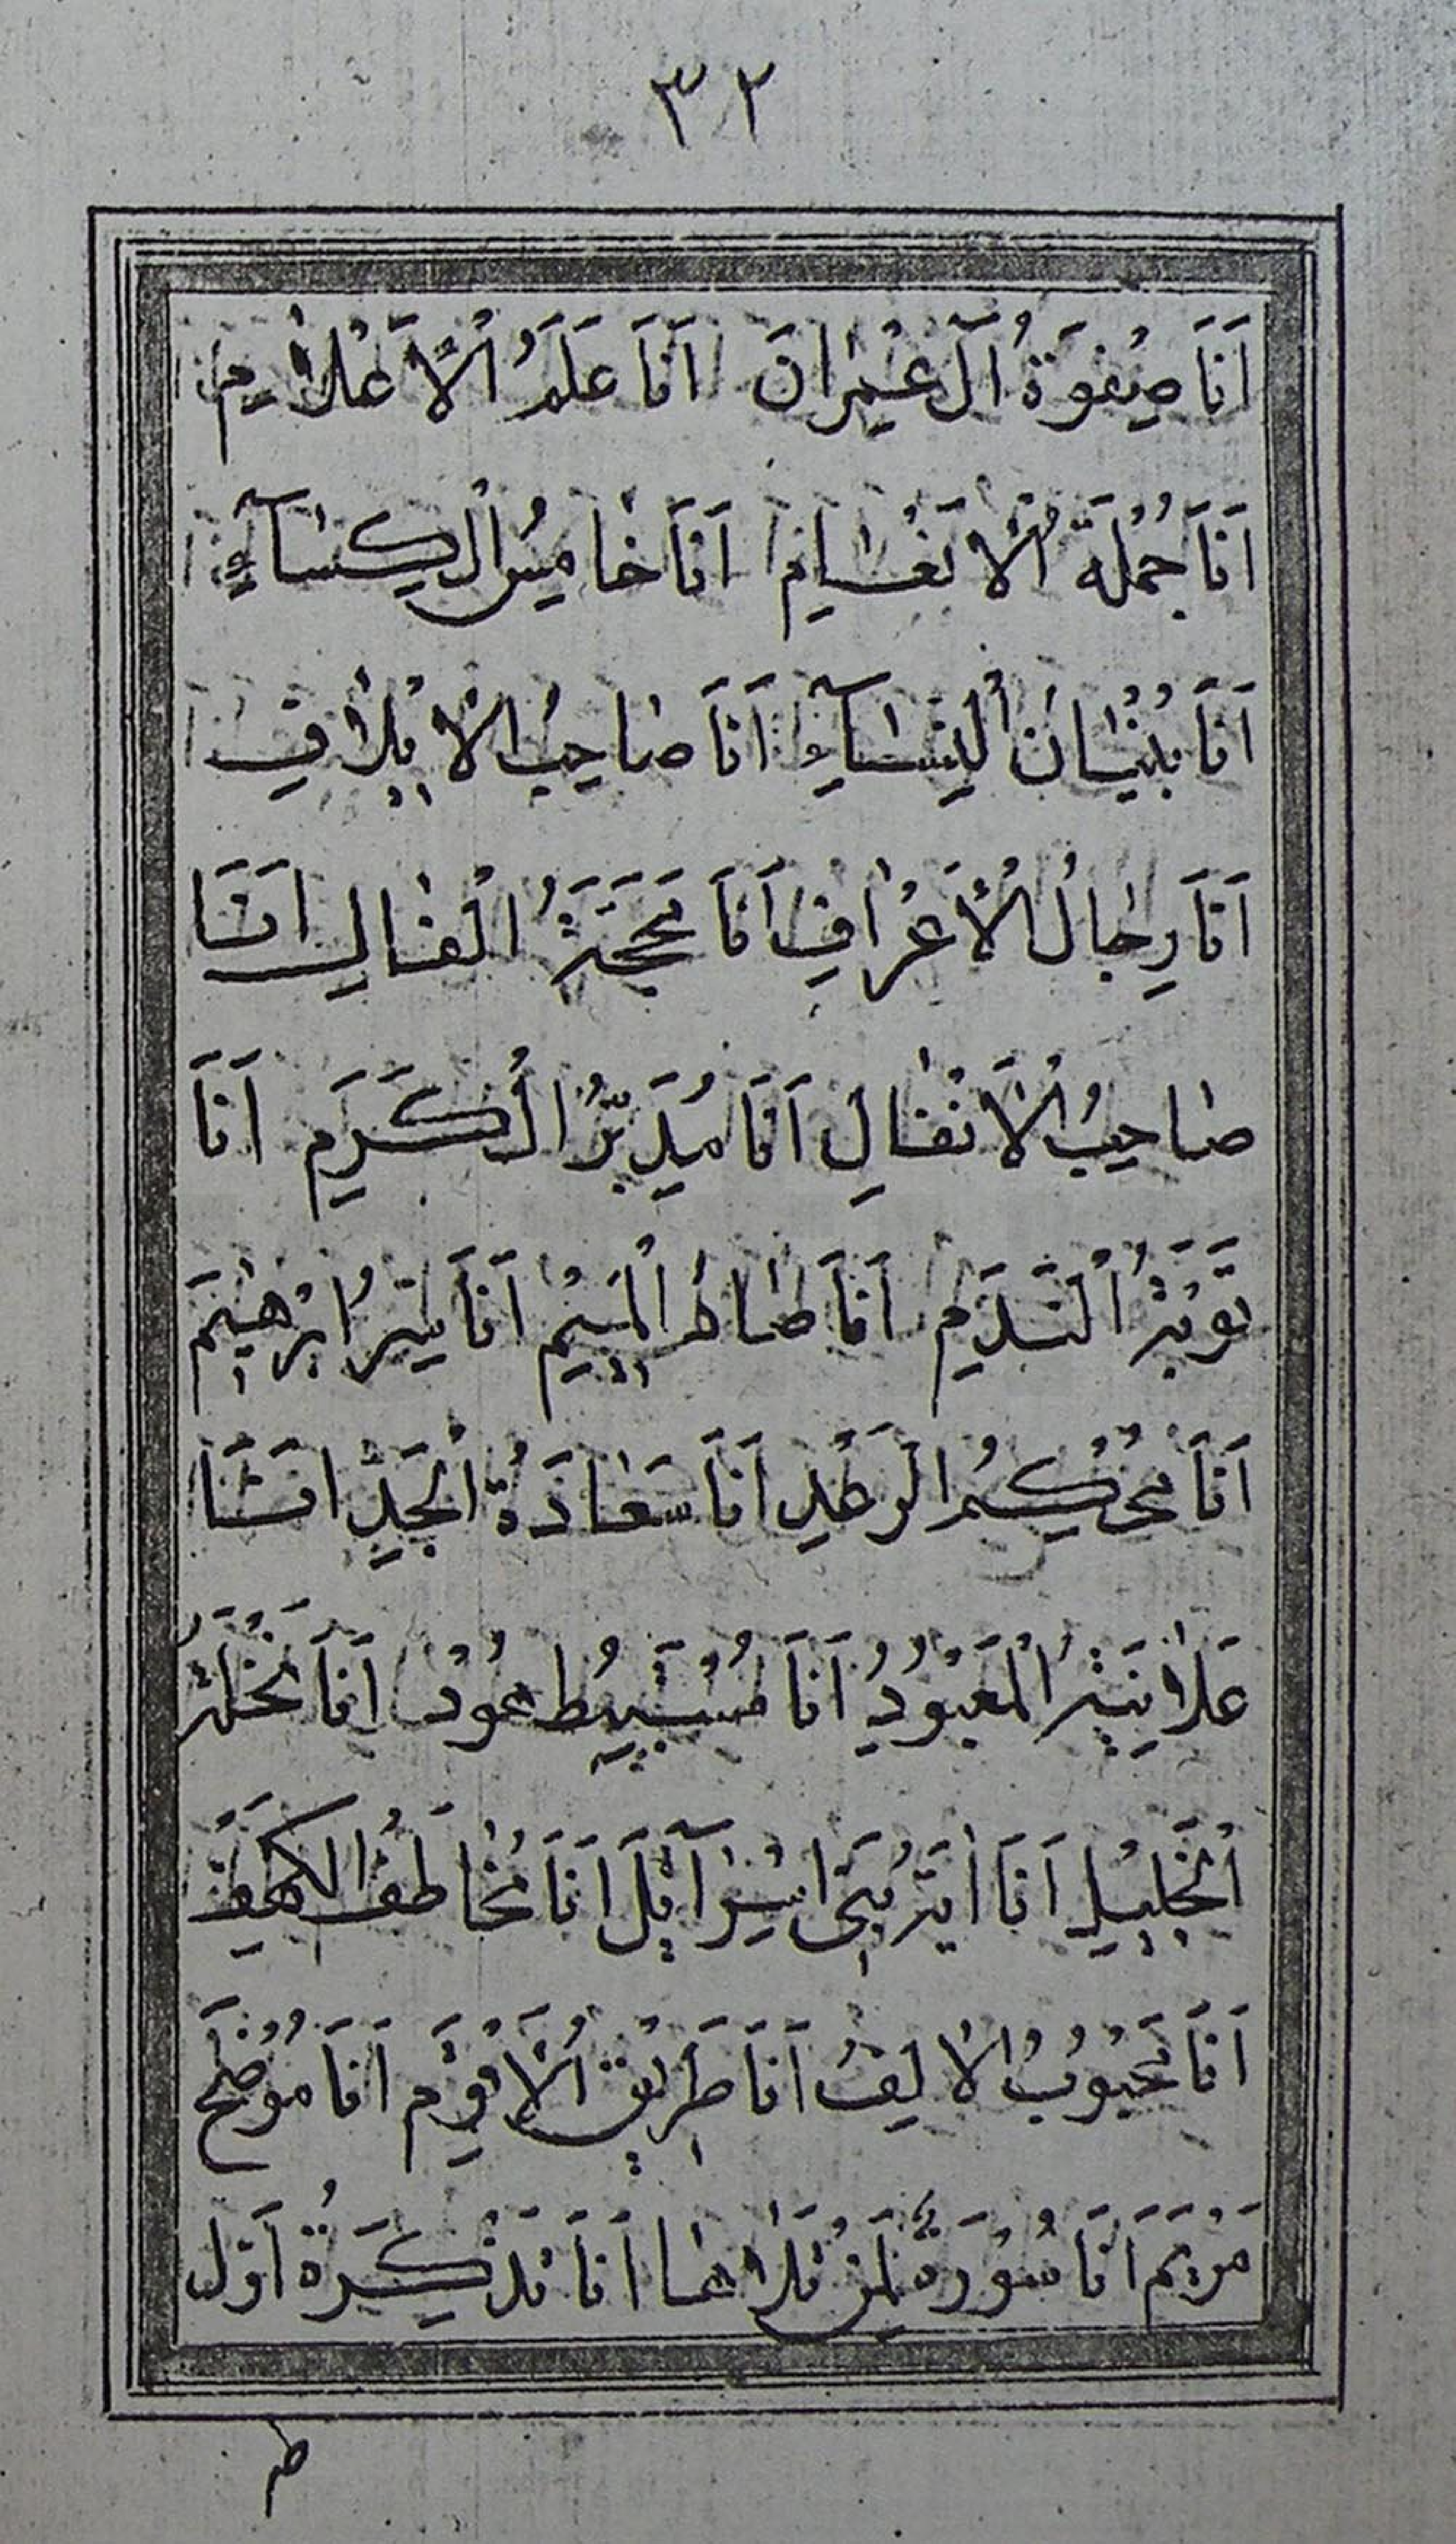 ٣٢
اَنَا صِفوَةُ آلِ عِمْرانَ اَنَا عَلَمُ الْاَعْلامِ
اَنَا جُمْلَةُ الْاَنْعامِ اَنَا خامِسُ الْكِسآءِ
اَنَا بُنْيانُ النِسآءِ اَنَا صاحِبُ الْاِيْلافِ
اَنَا رِجالُ الْاَعْرافِ اَنَا مَحَجَّةُ الْفالِ اَنَا
صاحِبُ الْاَنْفالِ اَنَا مُدَبِّرُ الْكَرَمِ اَنَا
تَوْبَةُ النَّدَمِ اَنَا صادُ الْمِيْمِ اَنَا سِرُّ اِبْرهِيْمَ
اَنَا مُحْكِمُ الرَعْدِ اَنَا سَعادَةُ الْجَدِّ اَنَا
عَلانِيَةُ الْمَعْبُودُ اَنَا مُسْتَنْبِطُ هُودْ اَنَا نَخْلَةُ
الْجَلِيْلِ اَنَا ايَةُ بَنِى اِسْرآئِلَ اَنَا مُخاطَفُ الْكَهْفِ
اَنَا مَحْبُوبُ الْالِفُ اَنَا طَرِيْقُ الْاَقْوَمِ اَنَا مُوْضِحُ
مَرْيَمَ اَنَا سُوْرَةٌ لِمَنْ تَلاها اَنَا تَذْكِرَةُ اَوَّل
طه